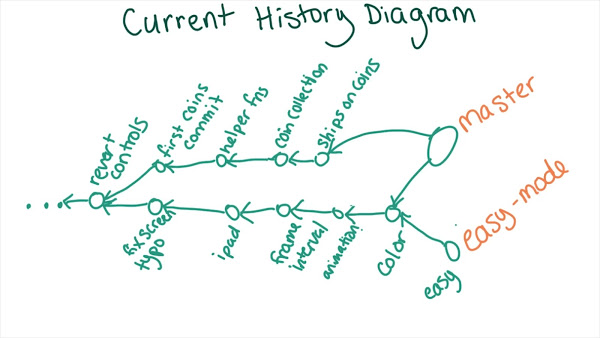 Current History Diagram
revert
controls
first coins
commit
helper fns
coin collection
ships on coins
master
fix screen
typo
ipad
frame
interval
animation
color
easy
easy-mode